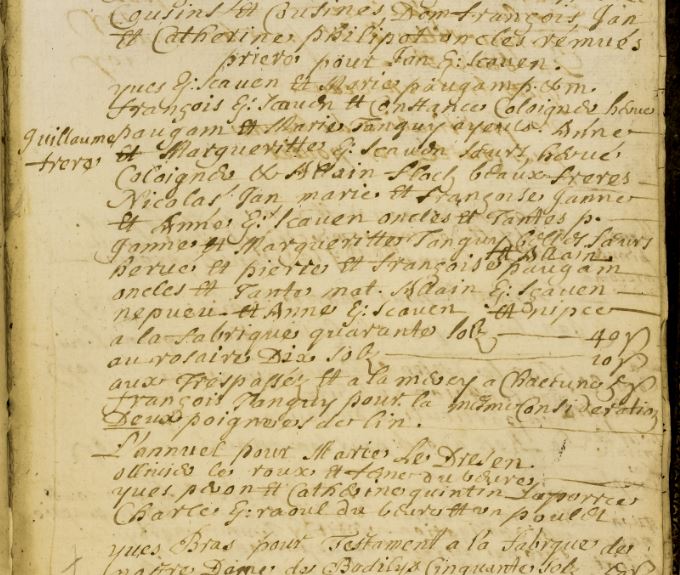 Cousins Et Cousines, Dom françois Jan
Et Catherine philipot oncles rémués
priere pour Jan G: scaven.
yves G: scaven Et Marie paugam p. Em.
françois G: scaven Et Constance Coloigner herve
paugam Et Marie Tanguy ayeuls. Anne
Guillaume
frere
Et Margueritte G: scaven sœurs, hervé
Coloigner & Allain floch beaux freres
Nicolas Jan marie Et françoise Janne
Et Anne G: scaven oncles Et Tantes p.
Janne Et Margueritte Tanguy belles sœurs
herve Et pierre Et françoise paugam
Et Allain
oncles Et Tante mat. Allain G: scaven
nepveu Et Anne G: scaven Et niepce
a la fabrique quarante solz 40 s
au rosaire Dix solz 10 s
aux Trespassez Et a la a Chacune
françois Tanguy pour la même Consideration
Deux poignees de lin.
L'annuel pour Marie Le Dresen.
ollivier le roux Et du beurre
yves Et Catherine quintin
Charle G: raoul du beurre Et un poulet
yves Bras pour Testament a la fabrique de
nostre Dame de Bodilis Cinquante solz